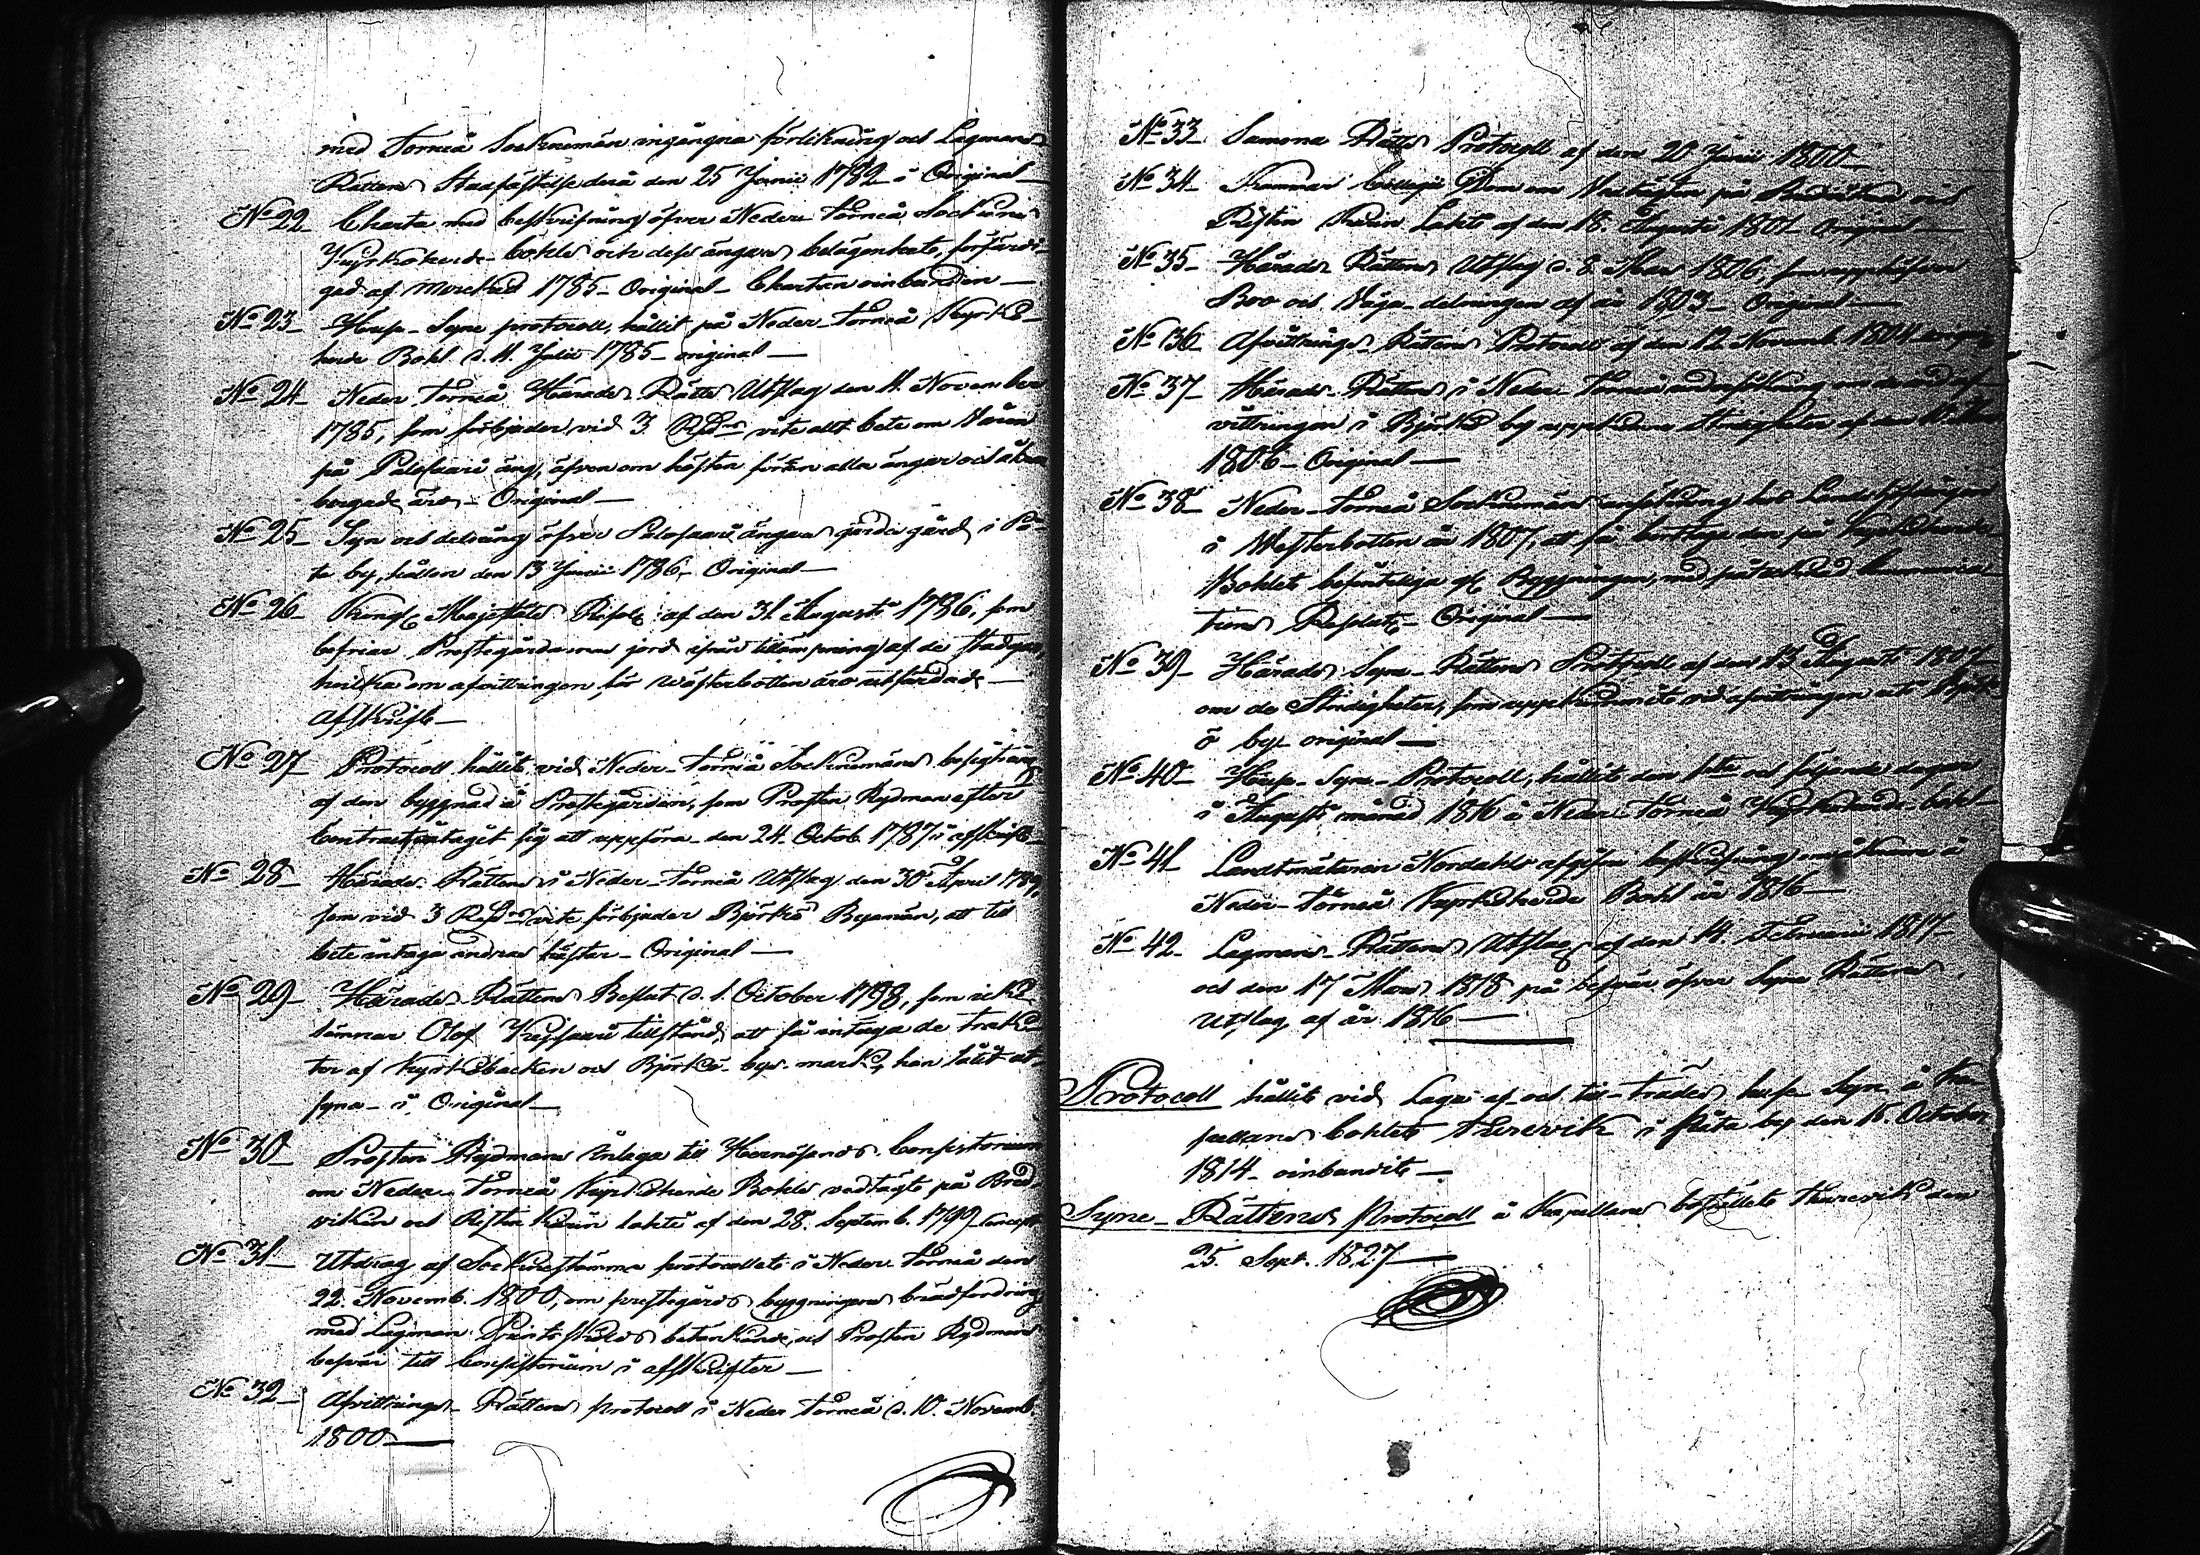 med Torneå Socknemän ingångna förlikning och Lagmans
Rättens Stadfästelse derå den 25 Junii 1782 i Original
No 22 Charta med beskrifning öfver Neder Torneå Sockens
Kyrkoherde-bohls och dess ängars belägenhet, förfärdi-
gad af 1785 - Original - Chartan oinbunden
No 23 Huse-Syne protocoll, hållit på Neder-Torneå Kyrko-
herde Bohl d. 11. Julii 1785 - original
No 24 Neder Torneå Härads Rätts Utslag den 11. November
1785, som förbjuder vid 3 Rdrs vite allt bete om Våren
på Palosaari äng, äfven om hösten förrän alla ängar och åkrar
bergade äro - Original
No 25 Syn och delning öfver Palosaari ängars gärdesgård i På-
ta by, hållen den 13 Junii 1786 - Original
No 26 Kongl. Majestäts Resol: af den 31 Augusti 1786, som
befriar Prestegårdarnes jord ifrån tillämpning af de stadgar,
hvilka om afvittringen för Wästerbotten äro utfärdade
Afskrift
No 27 Protocoll hållit vid Neder-Torneå Socknemäns besigtning
af den byggnad å Prestegården, som Prosten Rydman efter
Contract åtagit sig att uppföra - den 24. Octob. 1787 i afskrift
No 28 Härads-Rättens i Neder-Torneå Utslag den 30 April 1789,
som vid 3 Rdrs vite förbjuder Björkö Byamän, att till
bete intaga andras hästar - Original
No 29 Härads-Rättens Beslut d. 1. October 1798, som icke
lämnar Olof tillstånd, att få intaga de trak-
ter af Kyrkobacken och Björkö-bys mark, han låtit af-
syna - i Original
No 30 Prosten Rydmans Inlaga till Hernösands Consistorium
om Neder-Torneå Kyrkoherde Bohls vedtägt på Bred-
viken och af den 28. Septemb. 1799 Concept
No 31 Utdrag af Sockenestämmo protocollet i Neder Torneå den
22. Novemb. 1800, om prestegårds byggningens
med Lagman betänkande, och Prosten Rydmans
besvär till Consistorium i afskrifter
No 32 Afvittrings-Rättens protocoll i Neder Torneå d. 10. Novemb.
1800
No 33 Samma Rätts Protocoll af den 20 Junii 1800
No 34 Kammar Collegii Dom om på och
af den 18. Augusti 1801 Original
No 35 Härads Rättens Utslag d. 8. Mars 1806, som upphäfver
Bro och Väga-delningen af år 1803 - Original
No 36 Afvittrings-Rättens Protocoll af den 12 Novemb 1804
No 37 Härads-Rättens i Neder-Torneå undersökning om de vid af-
vittringen i Björkö by uppkomna stridigheter af den
1806 - Original
No 38 Neder-Torneå Socknemäns ansökning hos Landshöfdingen
i Westerbotten år 1807, att få borttaga den på Kyrkoherde
Bohlet befinteliga Byggningen, med påtecknad
tions Resolut - Original
No 39 Härads Syne-Rättens Protocoll af den 13 Augusti 1807
om de Stridigheter, som uppkommit vid afvittringen uti Björk-
ö by - original
No 40 Huse-Syne-Protocoll, hållit den 1sta och följande dagar
i Augusti månad 1816 å Neder-Torneå Kyrkoherde-bohl
No 41 Landtmätaren Nordahls afgifne beskrifning om åkrarne å
Neder-Torneå Kyrkoherde Bohl år 1816
No 42 Lagmans-Rättens Utslag af den 14. Februarii 1817
och den 17 Mars 1818 på besvär öfver Syne Rättens
Utslag af år 1816
Protocoll hållit vid Laga af- och till-trädes huse Syn å Ka-
pellans bohlet Thurevik i Påta by den 15. October
1814 - oinbundit
Syne-Rättens Protocoll å Kapellans bostället Thurevik den
25. Sept. 1827